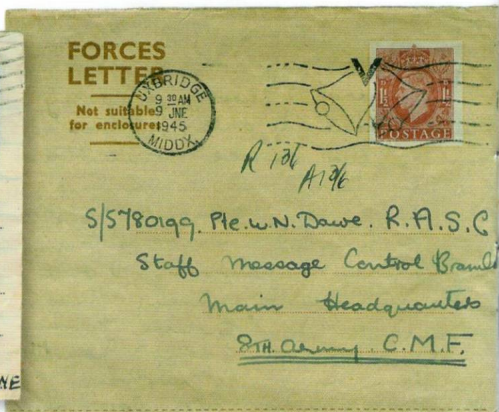 FORCES
LETTER
Not suitable
for enclosures
UXBRIDGE
9 30 AM
9 JNE
1945
MIDDX.
POSTAGE
R 13/6
A 13/6
S/5780199. Pte. W. N. Dawe. R.A.S.C
Staff Message Control Branch
Main Headquarters
8TH. Army. C.M.F.
NE